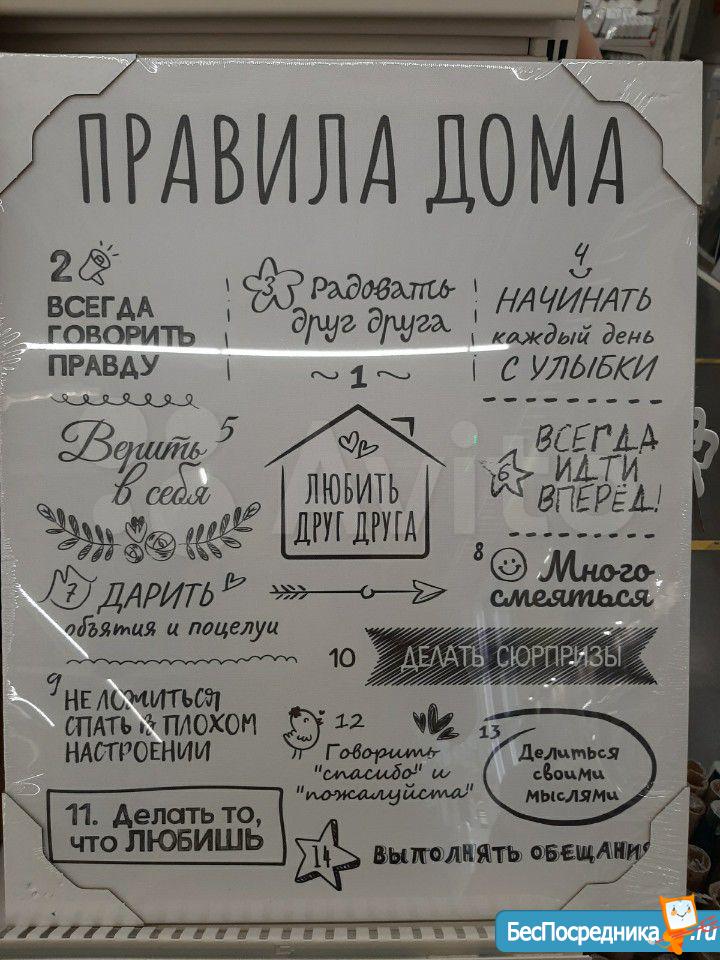 ПРАВИЛА ДОМА
2
ВСЕГДА
ГОВОРИТЬ
ПРАВДУ
3 Радовать
друг друга
4
НАЧИНАТЬ
каждый день
С УЛЫБКИ
~ 1 ~
ЛЮБИТЬ
ДРУГ ДРУГА
Верить 5
в себя
6 ВСЕГДА
ИДТИ
ВПЕРЁД!
7 ДАРИТЬ
объятия и поцелуи
8 Много
смеяться
9 НЕ ЛОЖИТЬСЯ
СПАТЬ В ПЛОХОМ
НАСТРОЕНИИ
10 ДЕЛАТЬ СЮРПРИЗЫ
12
Говорить
"спасибо" и
"пожалуйста"
13
Делиться
своими
мыслями
11. Делать то,
что ЛЮБИШЬ
14 ВЫПОЛНЯТЬ ОБЕЩАНИ
Avito
БесПосредника.ru